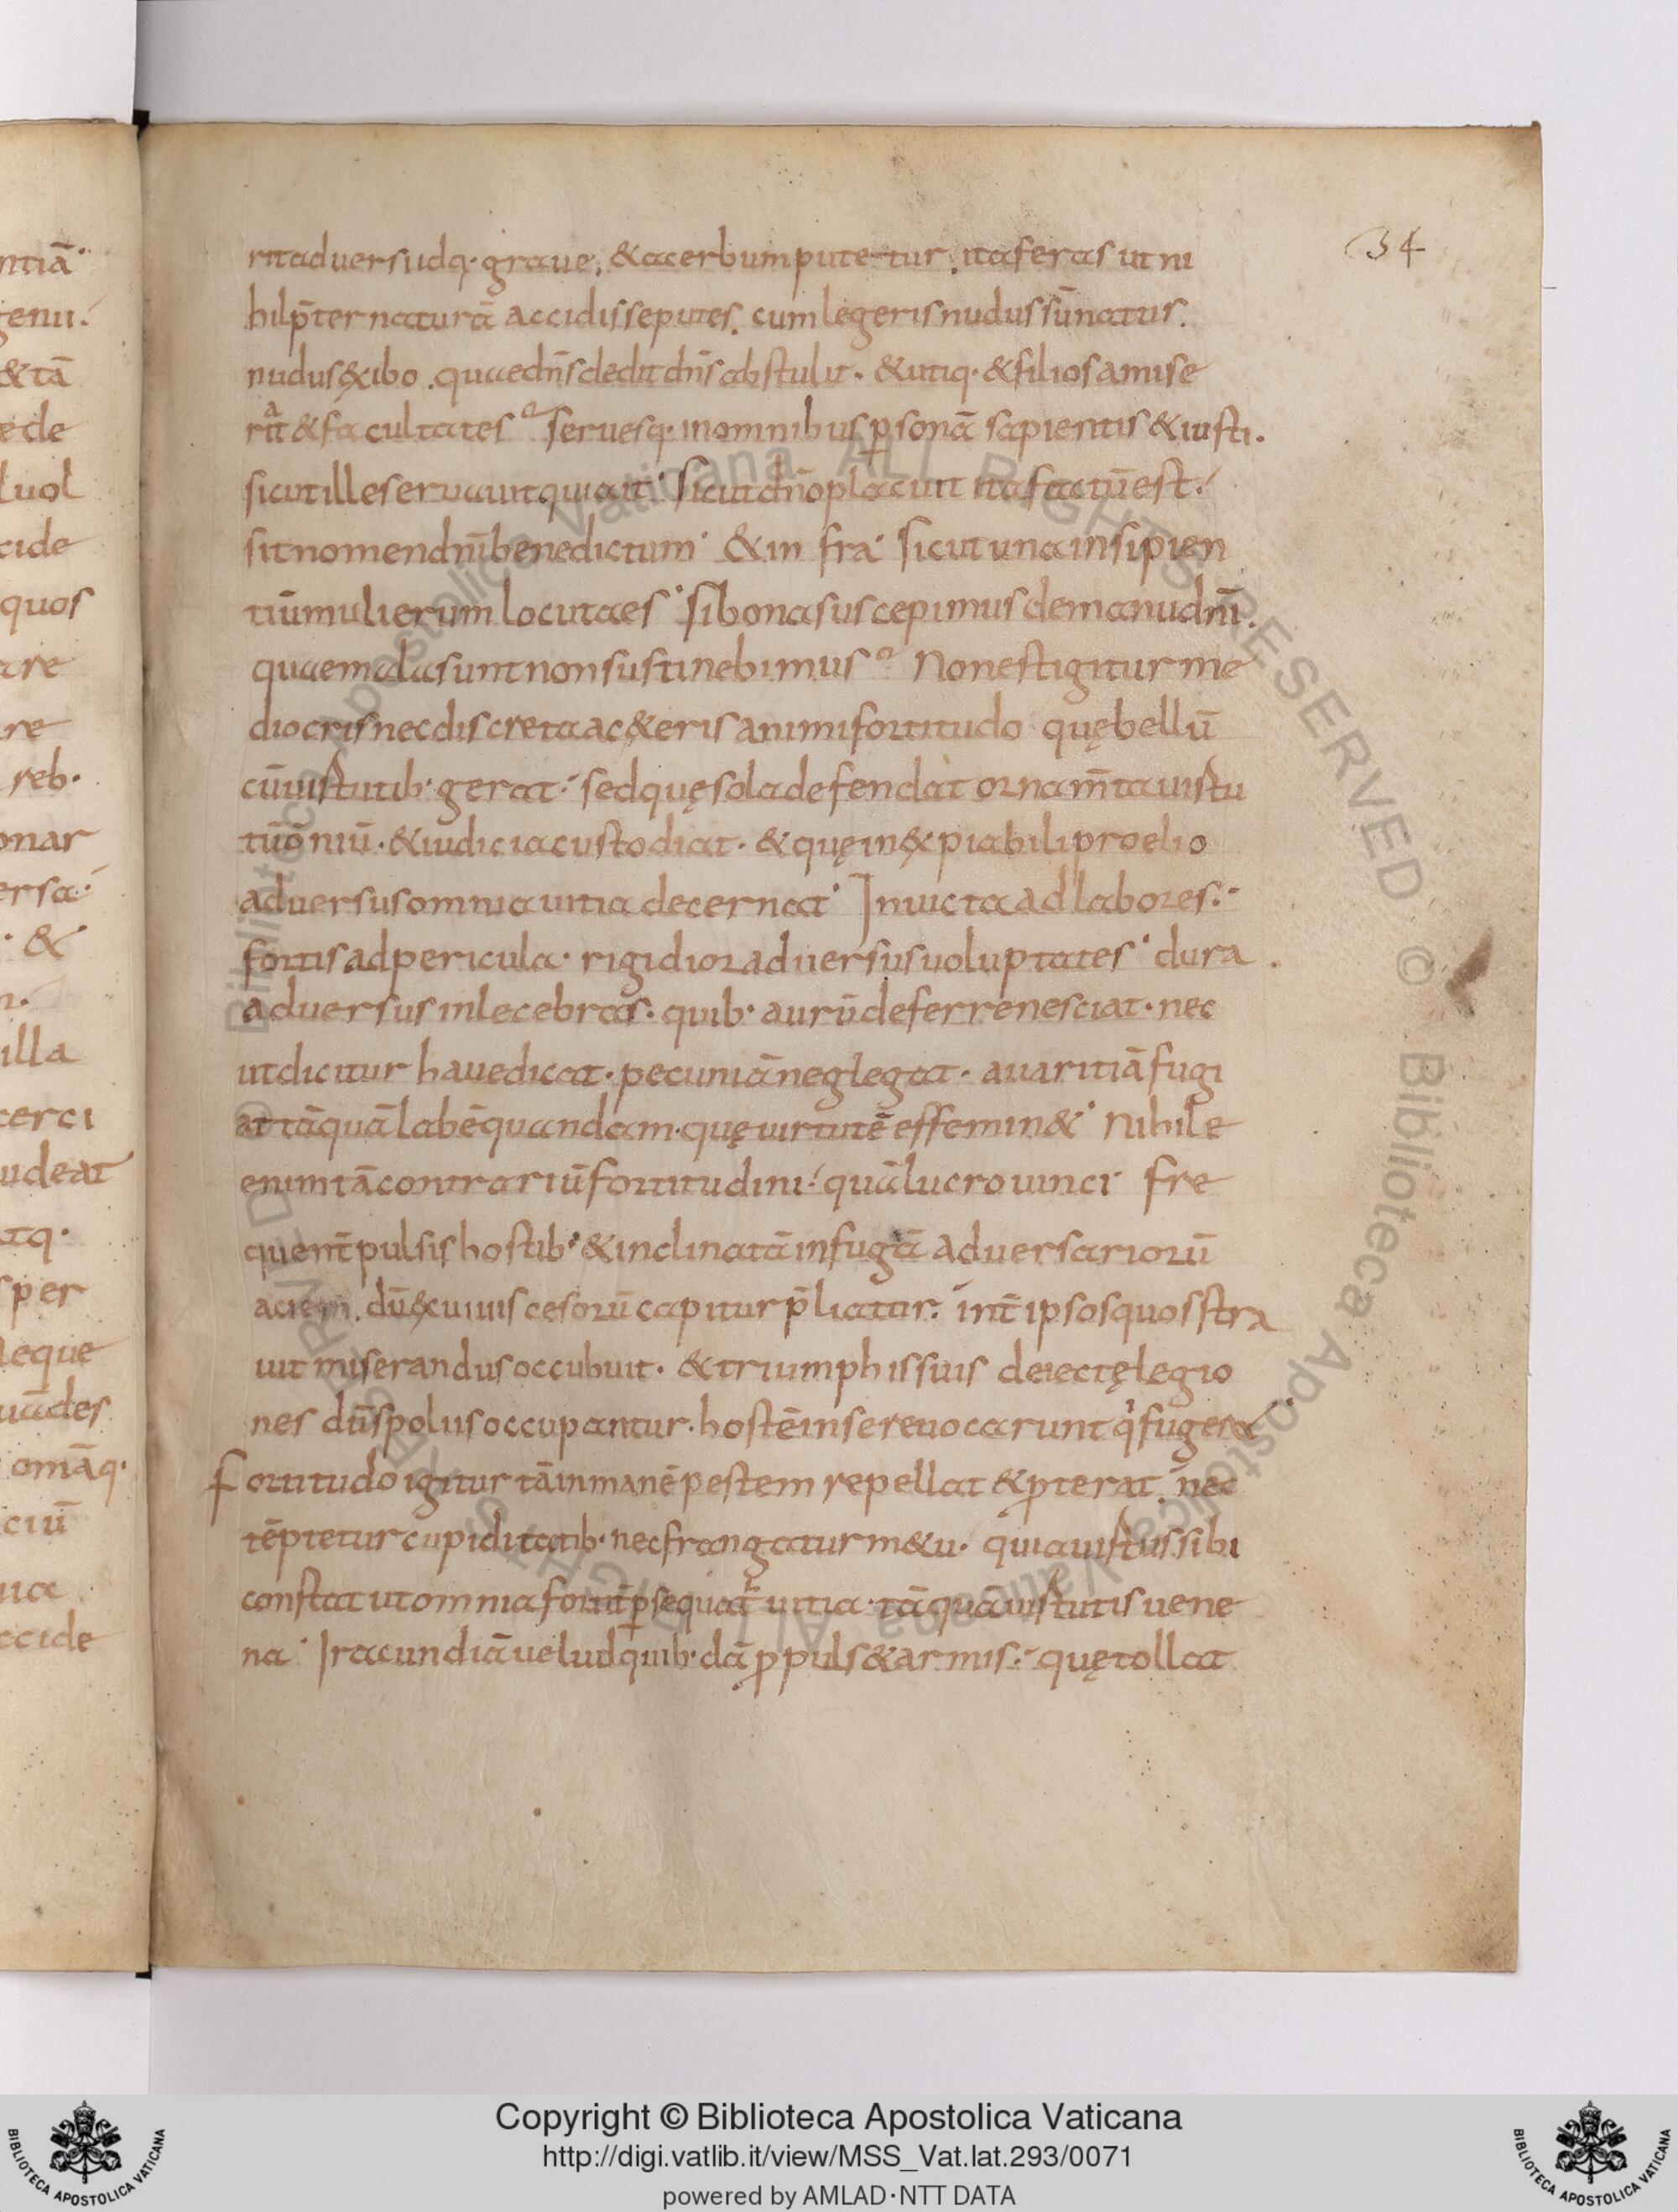 34
rit aduersudq· graue, & acerbum putetur, ita feras ut ni
hil p̄ter naturā accidisse putes. cum legeris nudus sū natus.
nudus & ibo. quae dn̄s dedit dn̄s abstulit. & utiq· & filios amise
rat & facultates seruesq· in omnibus ꝑsonā sapientis & iusti.
sicut ille seruauit qui ait· Sicut dn̄o placuit ita factū est.
sit nomen dn̄i benedictum· & infra· Sicut una insipien
tiū mulierum locuta es· Si bona suscepimus de manu dn̄i.
quae mala sunt non sustinebimus Non est igitur me
diocris nec discreta a c&eris animi fortitudo quę bellū
cū uirtutib· gerat· sed quę sola defendat ornam̄ta uirtu
tū om̄iū· & iudicia custodiat· & quę in&piabili proelio
aduersus omnia uitia decernat· Inuicta ad labores:·
fortis ad pericula· rigidior aduersus uoluptates· dura
aduersus inlecebras· quib· aurū deferre nesciat· nec
ut dicitur haue dicat· pecuniā neglegat· auaritiā fugi
at tāquā labē quandam· quę uirtutē effemin&· Nihil e
enim tā contrariū fortitudini· quā lucro uinci· fre
quent̄ pulsis hostib· & inclinatā in fugā aduersariorū
aciem. dū &cuuiis cesorū capitur p̄liatur· int̄ ipsos quos stra
uit miserandus occubuit· & triumphis suis deiectę legio
nes dū spoliis occupantur· hostē in se reuocarunt qͥ fugerat
Fortitudo igitur tā inmanē pestem repellat & ꝓterat. nec
tēptetur cupiditatib· nec frangatur m&u· quia uirtus sibi
constat ut omnia fortit̄ ꝑsequat̄ uitia· tāquā uirtutis uene
na· Iracundiā uelud quib·dā ꝓpuls& armis:· quę tollat
Copyright © Biblioteca Apostolica Vaticana
http://digi.vatlib.it/view/MSS_Vat.lat.293/0071
powered by AMLAD·NTT DATA